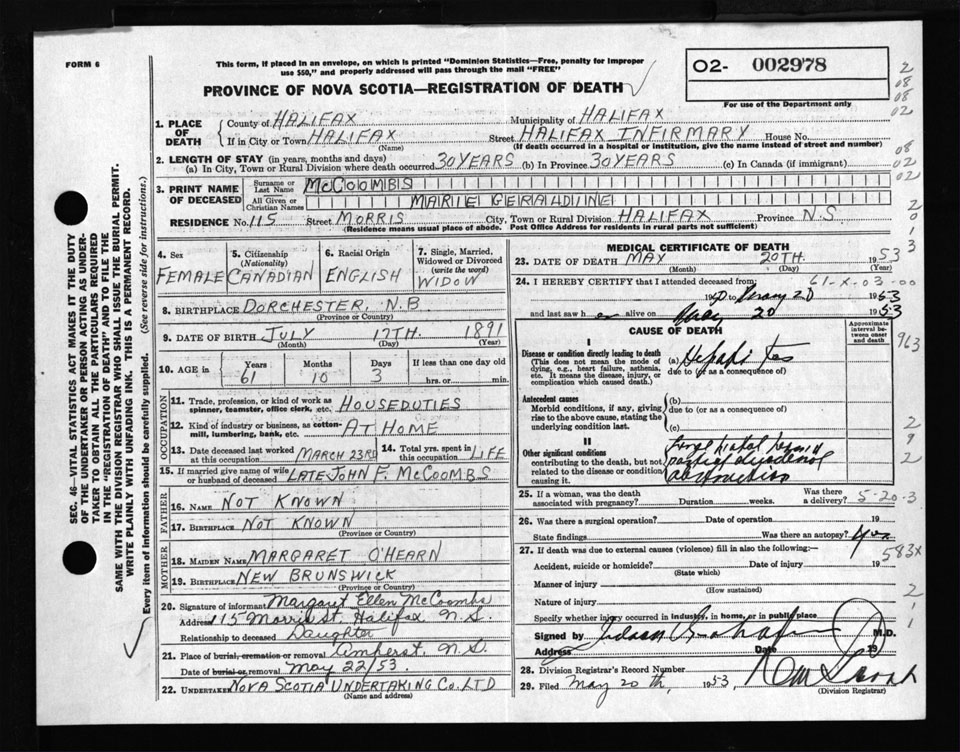 FORM 6
This form, if placed in an envelope, on which is printed "Dominion Statistics—Free, penalty for improper
use $50," and properly addressed will pass through the mail "FREE"
O2- 002978
For use of the Department only
PROVINCE OF NOVA SCOTIA—REGISTRATION OF DEATH
1. PLACE OF DEATH
County of HALIFAX Municipality of HALIFAX
If in City or Town HALIFAX Street HALIFAX INFIRMARY House No.
(Name) (If death occurred in a hospital or institution, give the name instead of street and number)
2. LENGTH OF STAY (in years, months and days)
(a) In City, Town or Rural Division where death occurred 30 YEARS (b) In Province 30 YEARS (c) In Canada (if immigrant)
3. PRINT NAME OF DECEASED
Surname or Last Name McCOOMBS
All Given or Christian Names MARIE GERALDINE
RESIDENCE No. 115 Street MORRIS City, Town or Rural Division HALIFAX Province N.S.
(Residence means usual place of abode. Post Office Address for residents in rural parts not sufficient)
4. Sex FEMALE
5. Citizenship (Nationality) CANADIAN
6. Racial Origin ENGLISH
7. Single, Married, Widowed or Divorced (write the word) WIDOW
8. BIRTHPLACE DORCHESTER, N.B
(Province or Country)
9. DATE OF BIRTH JULY 17TH. 1891
(Month) (Day) (Year)
10. AGE in Years 61 Months 10 Days 3 If less than one day old
hrs. or min.
OCCUPATION
11. Trade, profession or kind of work as spinner, teamster, office clerk, etc. HOUSEDUTIES
12. Kind of industry or business, as cotton-mill, lumbering, bank, etc. AT HOME
13. Date deceased last worked at this occupation MARCH 23RD
14. Total yrs. spent in this occupation LIFE
15. If married give name of wife or husband of deceased LATE JOHN F. McCOOMBS
FATHER
16. NAME NOT KNOWN
17. BIRTHPLACE NOT KNOWN
(Province or Country)
MOTHER
18. MAIDEN NAME MARGARET O'HEARN
19. BIRTHPLACE NEW BRUNSWICK
(Province or Country)
20. Signature of informant Margaret Ellen McCoombs
Address 115 Morris St. Halifax N.S.
Relationship to deceased Daughter
21. Place of burial, cremation or removal Amherst, N.S.
Date of burial or removal May 22/53.
22. UNDERTAKER NOVA SCOTIA UNDERTAKING CO. LTD
(Name and address)
MEDICAL CERTIFICATE OF DEATH
23. DATE OF DEATH MAY 20TH. 1953
(Month) (Day) (Year)
24. I HEREBY CERTIFY that I attended deceased from: 61-X-03-00
to May 20 1953
and last saw her alive on May 20 1953
CAUSE OF DEATH
Approximate interval between onset and death
I
Disease or condition directly leading to death
(This does not mean the mode of dying, e.g., heart failure, asthenia, etc. It means the disease, injury, or complication which caused death.)
(a) Hepatitis
due to (or as a consequence of)
Antecedent causes
Morbid conditions, if any, giving rise to the above cause, stating the underlying condition last.
(b)
due to (or as a consequence of)
(c)
II
Other significant conditions contributing to the death, but not related to the disease or condition causing it.
Large hiatal hernia
partial duodenal
obstruction
25. If a woman, was the death associated with pregnancy? Duration weeks. Was there a delivery? 5-20-3
26. Was there a surgical operation? Date of operation 19
State findings Was there an autopsy? Yes
27. If death was due to external causes (violence) fill in also the following:—
Accident, suicide or homicide? Date of injury 19
(State which)
Manner of injury
(How sustained)
Nature of injury
Specify whether injury occurred in industry, in home, or in public place
Signed by M.D.
Address Date 19
28. Division Registrar's Record Number
29. Filed May 20th, 1953
(Division Registrar)
963
583X
SEC. 46—VITAL STATISTICS ACT MAKES IT THE DUTY
OF THE UNDERTAKER OR PERSON ACTING AS UNDER-
TAKER TO OBTAIN ALL THE PARTICULARS REQUIRED
IN THE "REGISTRATION OF DEATH" AND TO FILE THE
SAME WITH THE DIVISION REGISTRAR WHO SHALL ISSUE THE BURIAL PERMIT.
WRITE PLAINLY WITH UNFADING INK. THIS IS A PERMANENT RECORD.
Every item of information should be carefully supplied. (See reverse side for instructions.)